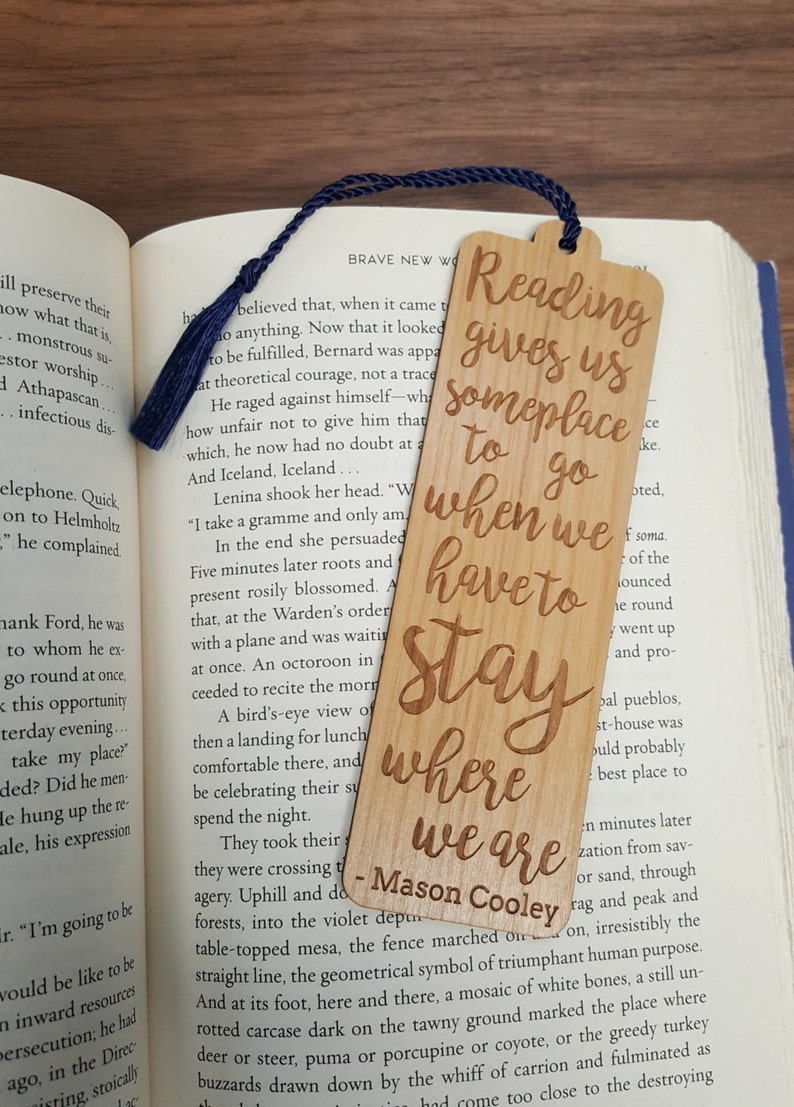 ill preserve their
now what that is,
. . monstrous su-
estor worship . . .
d Athapascan . . .
. . infectious dis-
elephone. Quick,
on to Helmholtz
," he complained.
hank Ford, he was
to whom he ex-
go round at once,
k this opportunity
terday evening . . .
take my place?"
ded? Did he men-
He hung up the re-
ale, his expression
ir. "I'm going to be
would be like to be
n inward resources
persecution; he had
ago, in the Direc-
isting, stoically
BRAVE NEW WO
believed that, when it came t
o anything. Now that it looked
to be fulfilled, Bernard was appa
at theoretical courage, not a trace
He raged against himself—wha
how unfair not to give him that
which, he now had no doubt at a
ke.
And Iceland, Iceland . . .
Lenina shook her head. "W
oted,
"I take a gramme and only am
In the end she persuaded
f soma.
Five minutes later roots and
of the
present rosily blossomed. A
ounced
that, at the Warden's order
he round
with a plane and was waitin
y went up
at once. An octoroon in
and pro-
ceeded to recite the morn
A bird's-eye view of
bal pueblos,
then a landing for lunch
st-house was
comfortable there, and
ould probably
be celebrating their su
best place to
spend the night.
They took their s
n minutes later
they were crossing t
zation from sav-
agery. Uphill and do
or sand, through
forests, into the violet depth
rag and peak and
table-topped mesa, the fence marched on and on, irresistibly the
straight line, the geometrical symbol of triumphant human purpose.
And at its foot, here and there, a mosaic of white bones, a still un-
rotted carcase dark on the tawny ground marked the place where
deer or steer, puma or porcupine or coyote, or the greedy turkey
buzzards drawn down by the whiff of carrion and fulminated as
had come too close to the destroying
Reading
gives us
someplace
to go
when we
have to
stay
where
we are
- Mason Cooley